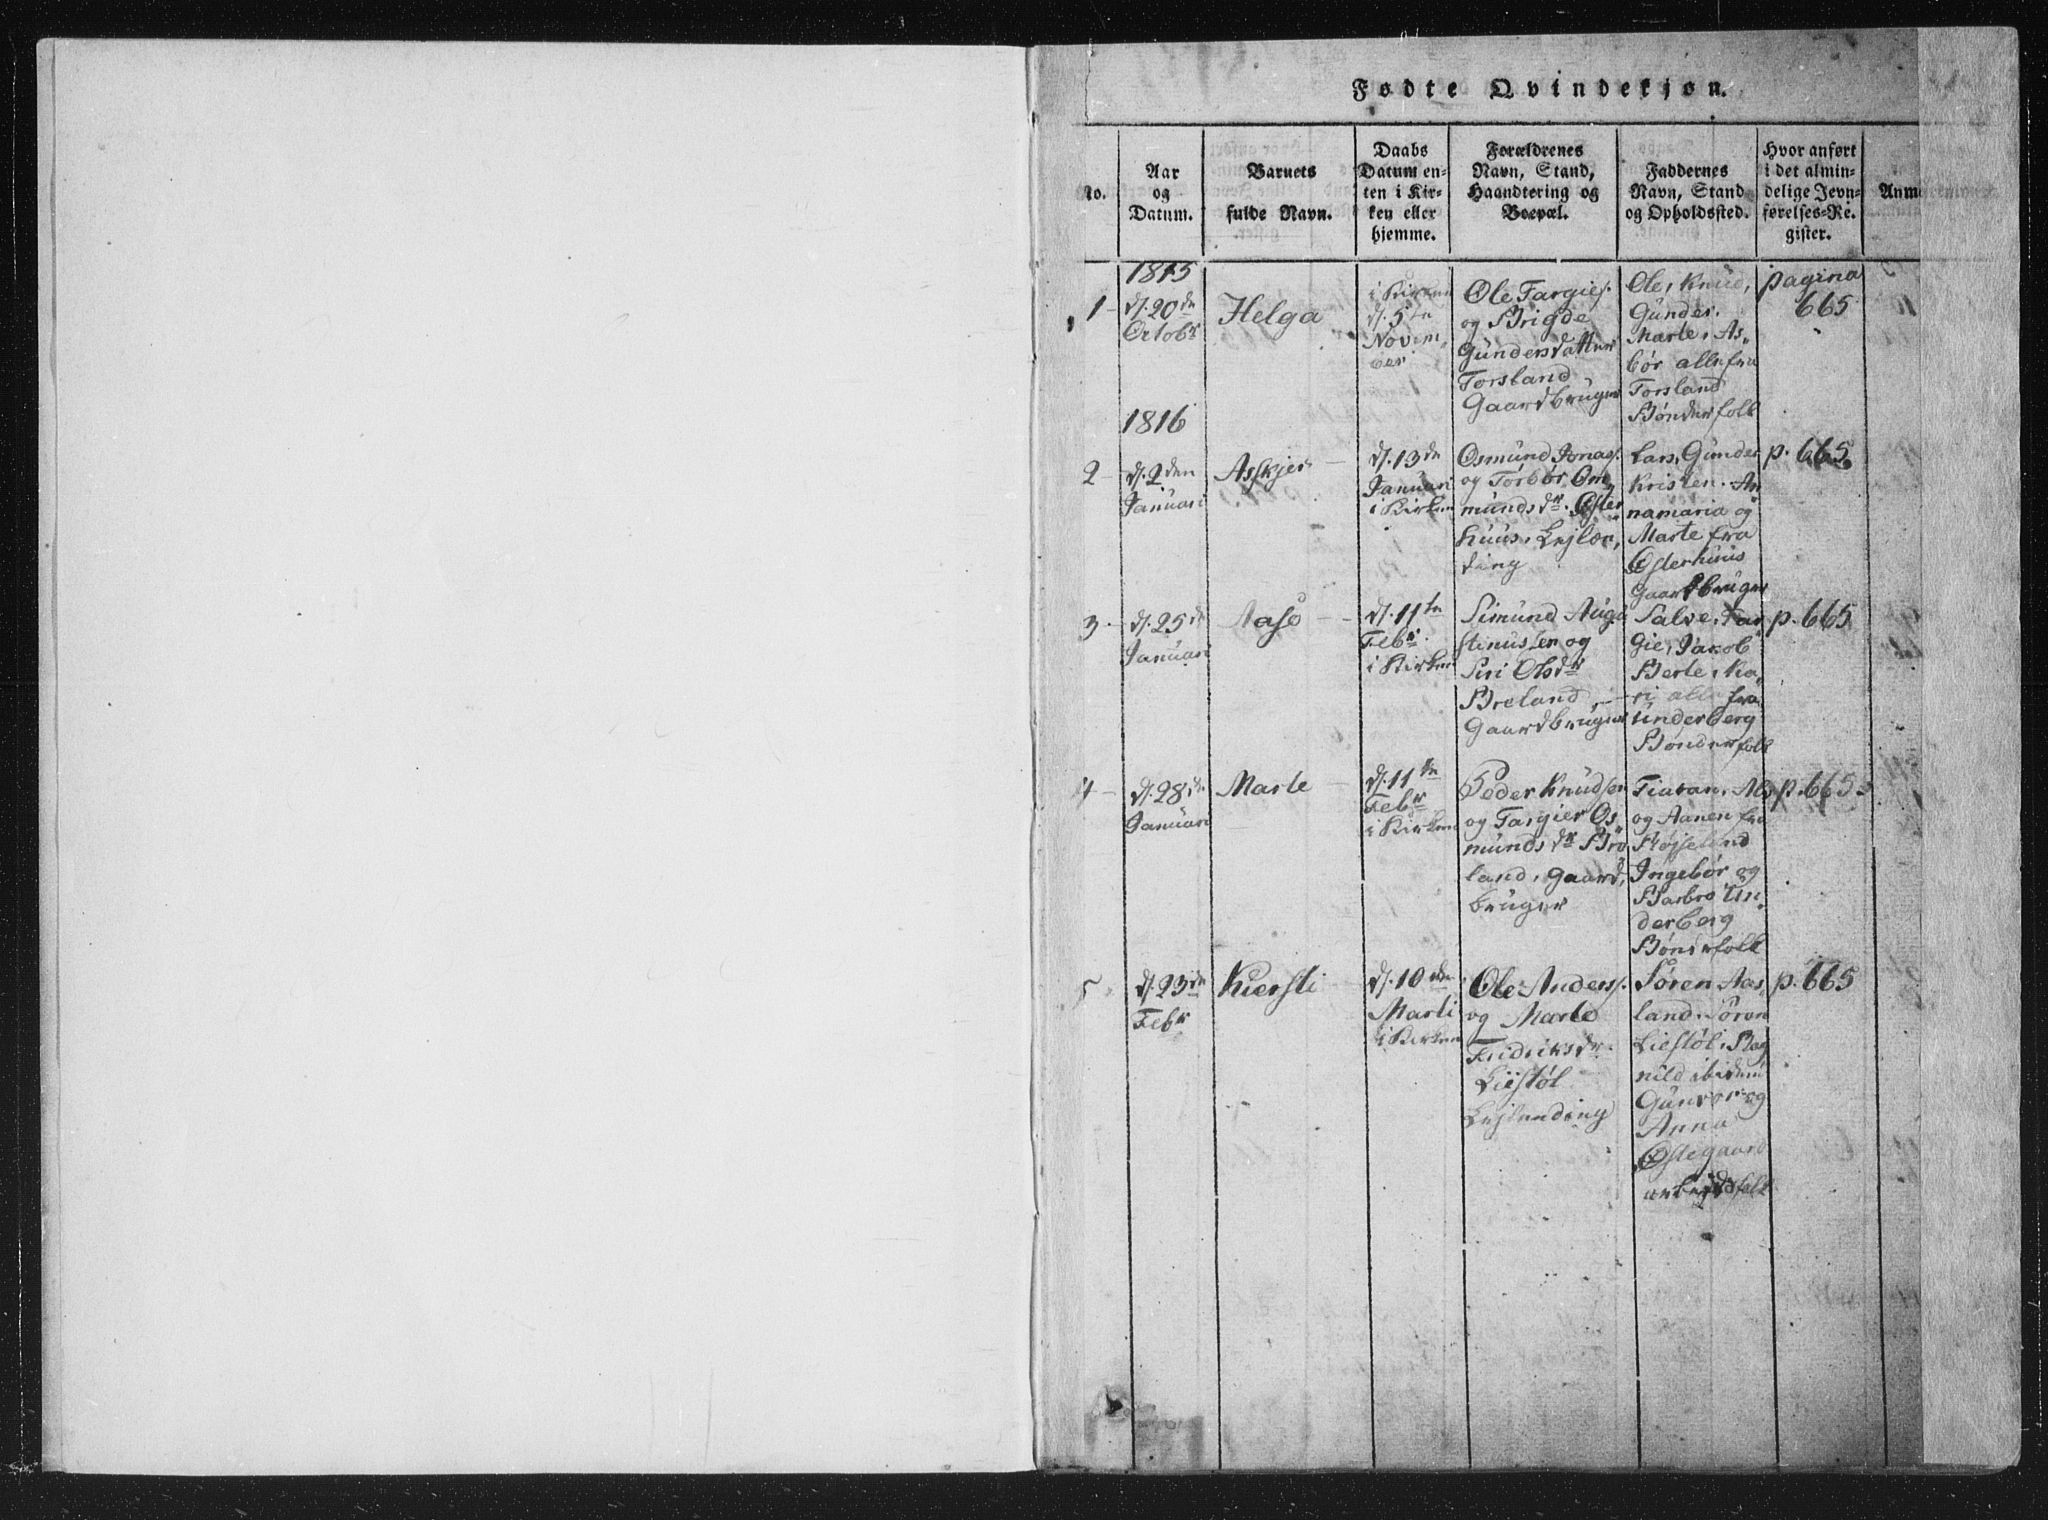 Fødte Qvindekjøn.
No.
Aar
og
Datum.
Barnets
fulde Navn.
Daabs
Datum en-
ten i Kir-
ken eller
hjemme.
Forældrenes
Navn, Stand,
Haandtering og
Boepæl.
Faddernes
Navn, Stand
og Opholdssted.
Hvor anført
i det almin-
delige Jevn-
førelses-Re-
gister.
Anm
1815
1
d. 20de
Octobr
Helga
i Kirken
d. 5te
Novem
ber
Ole Targies.
og Brigde
Gundersdatter
Torsland
Gaardbruger
Ole, Knud,
Gunder.
Marte, As,,
bør alle fra
Torsland
Bønderfolk
pagina
665
1816
2
d. 2den
Januari
Asskjer
d. 13de
Januari
i Kirken
Osmund Jonas.
og Torbør Om,,
munds dr. Øster
huus. Lejlæn,
ding
Lars, Gunder
Kristen. An
namaria og
Marte fra
Østerhuus
Gaardbruger
p. 665
3.
d. 25de
Januari
Aaso
d. 11te
Febr.
i Kirken
Simund Augu
stinussen og
Siri Olsdr
Breland
Gaardbruger
Salve, Tar
gie, Jakob
Berte, Ka,
ri alle fra
Underberg
Bønderfolk
p. 665
4
d. 28de
Januari
Marte
d. 11te
Febr
i Kirken
Peder Knudsen
og Targier Os
munds dr Bro
land, Gaard,
bruger
og Aanen fra
Støjseland
Ingebør og
Barbro Un,
derberg
Bønderfolk
p. 665
5
d. 23de
Febr
Kiersti
d. 10de
Marti
i Kirken
Ole Anders.
og Marte
Fridriksdr.
Liestøl
Lejlænding
Søren Aas,
land. Søren
Liestøl, Rag
nild ibidem
Gunvor og
Anna
Østegaard
arbejdsfolk
p. 665